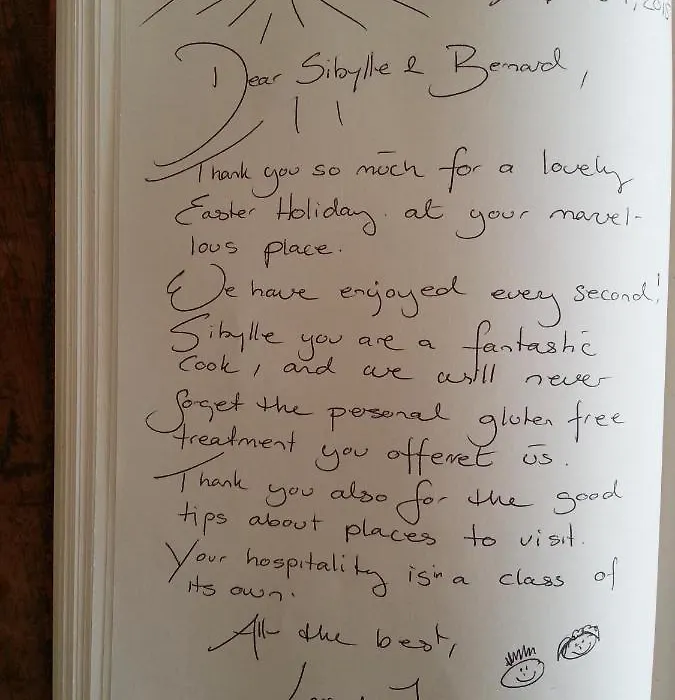 Dear Sibylle & Bernard,
Thank you so much for a lovely
Easter Holiday. at your marvel-
lous place.
We have enjoyed every second!
Sibylle you are a fantastic
cook, and we will never
forget the personal gluten free
treatment you offeret us.
Thank you also for the good
tips about places to visit.
Your hospitality is in a class of
its own.
All the best,